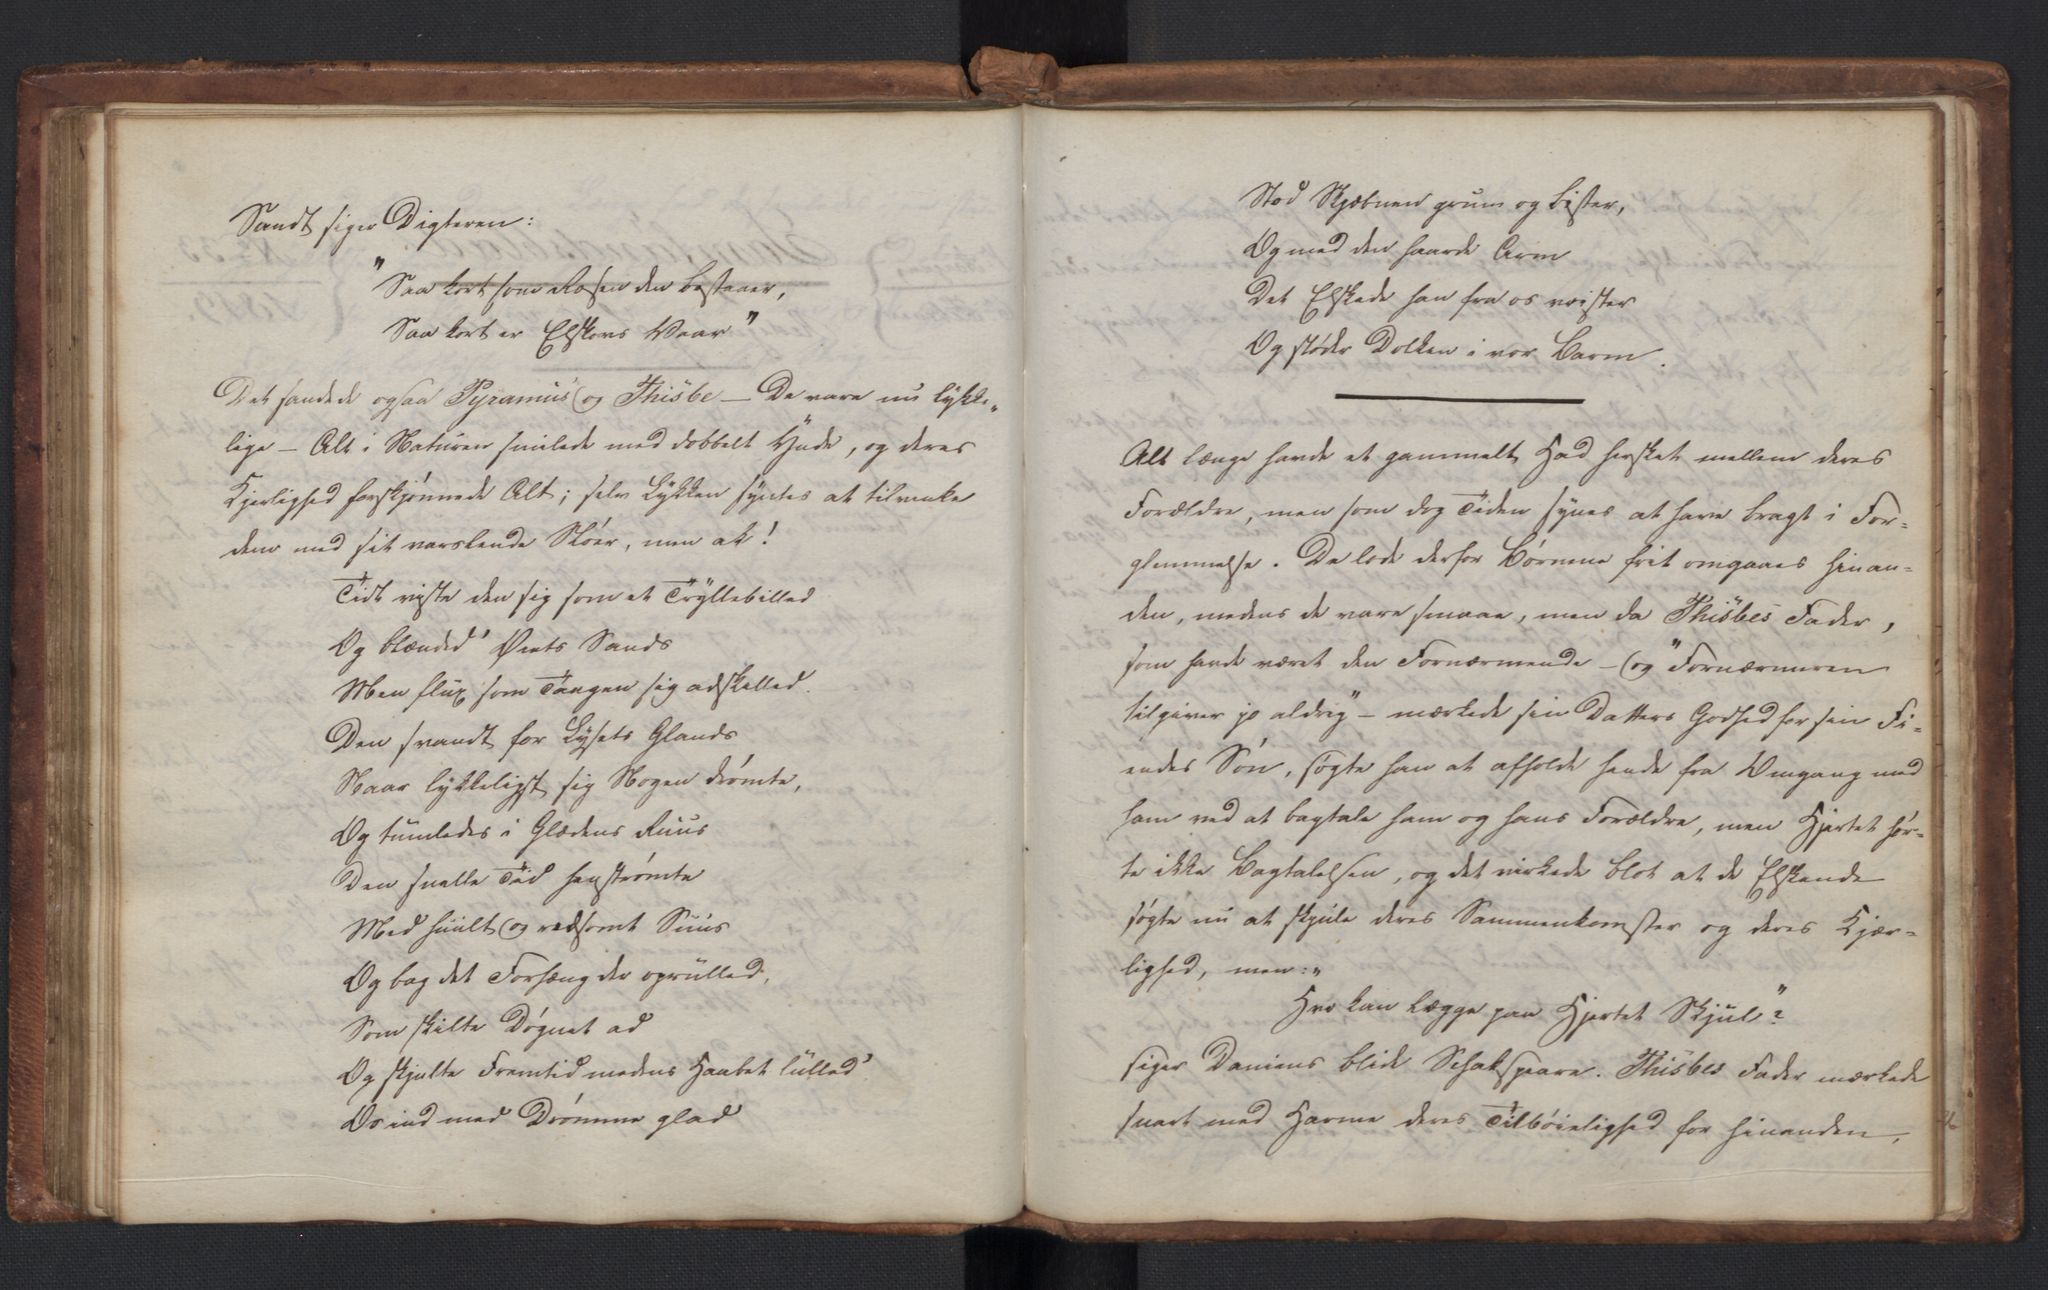 Sandt siger Digteren:
"Saa kort som Rosen den bestaaer,
Saa kort er Elskovs Vaar"
Det sandede ogsaa Pyramus og Thisbe — De vare nu lykke„
lige — Alt i Naturen smilede med dobbelt Ynde, og deres
Kjerlighed forskjønnede Alt; selv Lykken syntes at tilvinke
dem med sit vexlende Slöer, men ak!
Tidt viste den sig som et Tryllebilled
Og blænded' Øiets Sands
Men flux som Taagen sig adskilled.
Den svandt for Lysets Glands
Naar lykkeligst sig Nogen drömte,
Og tumledes i Glædens Ruus
Den snelle Tid henströmte
Med huult og rædsomt Suus
Og bag det Forhæng der oprulled,
Som skilte Døgnet ad
Og skjulte Fremtid medens Haabet lulled'
Os ind med Drömme glad
Stod Skjæbnen grum og bister,
Og med den haarde Arm
Det Elskede han fra os vrister
Og støder Dolken i vor Barm.
Alt længe havde et gammelt Had hersket mellem deres
Forældre, men som dog Tiden synes at have bragt i For-
glemmelse. De lode derfor Børnene frit omgaaes hinan-
den, medens de vare smaae, men da Thisbes Fader,
som havde været den Fornærmende — og "Fornærmeren
tilgiver jo aldrig" — mærkede sin Datters Godhed for sin Fi-
endes Søn, søgte han at afholde hende fra Omgang med
ham ved at bagtale ham og hans Forældre, men Hjertet hör-
te ikke Bagtalelsen, og det virkede blot at de Elskende
søgte nu at skjule deres Sammenkomster og deres Kjær-
lighed, men:„
Hvo kan lægge paa Hjertet Skjul"?
siger Daniens blide Schakspeare. Thisbes Fader mærkede
snart med Harme deres Tilböielighed for hinanden,